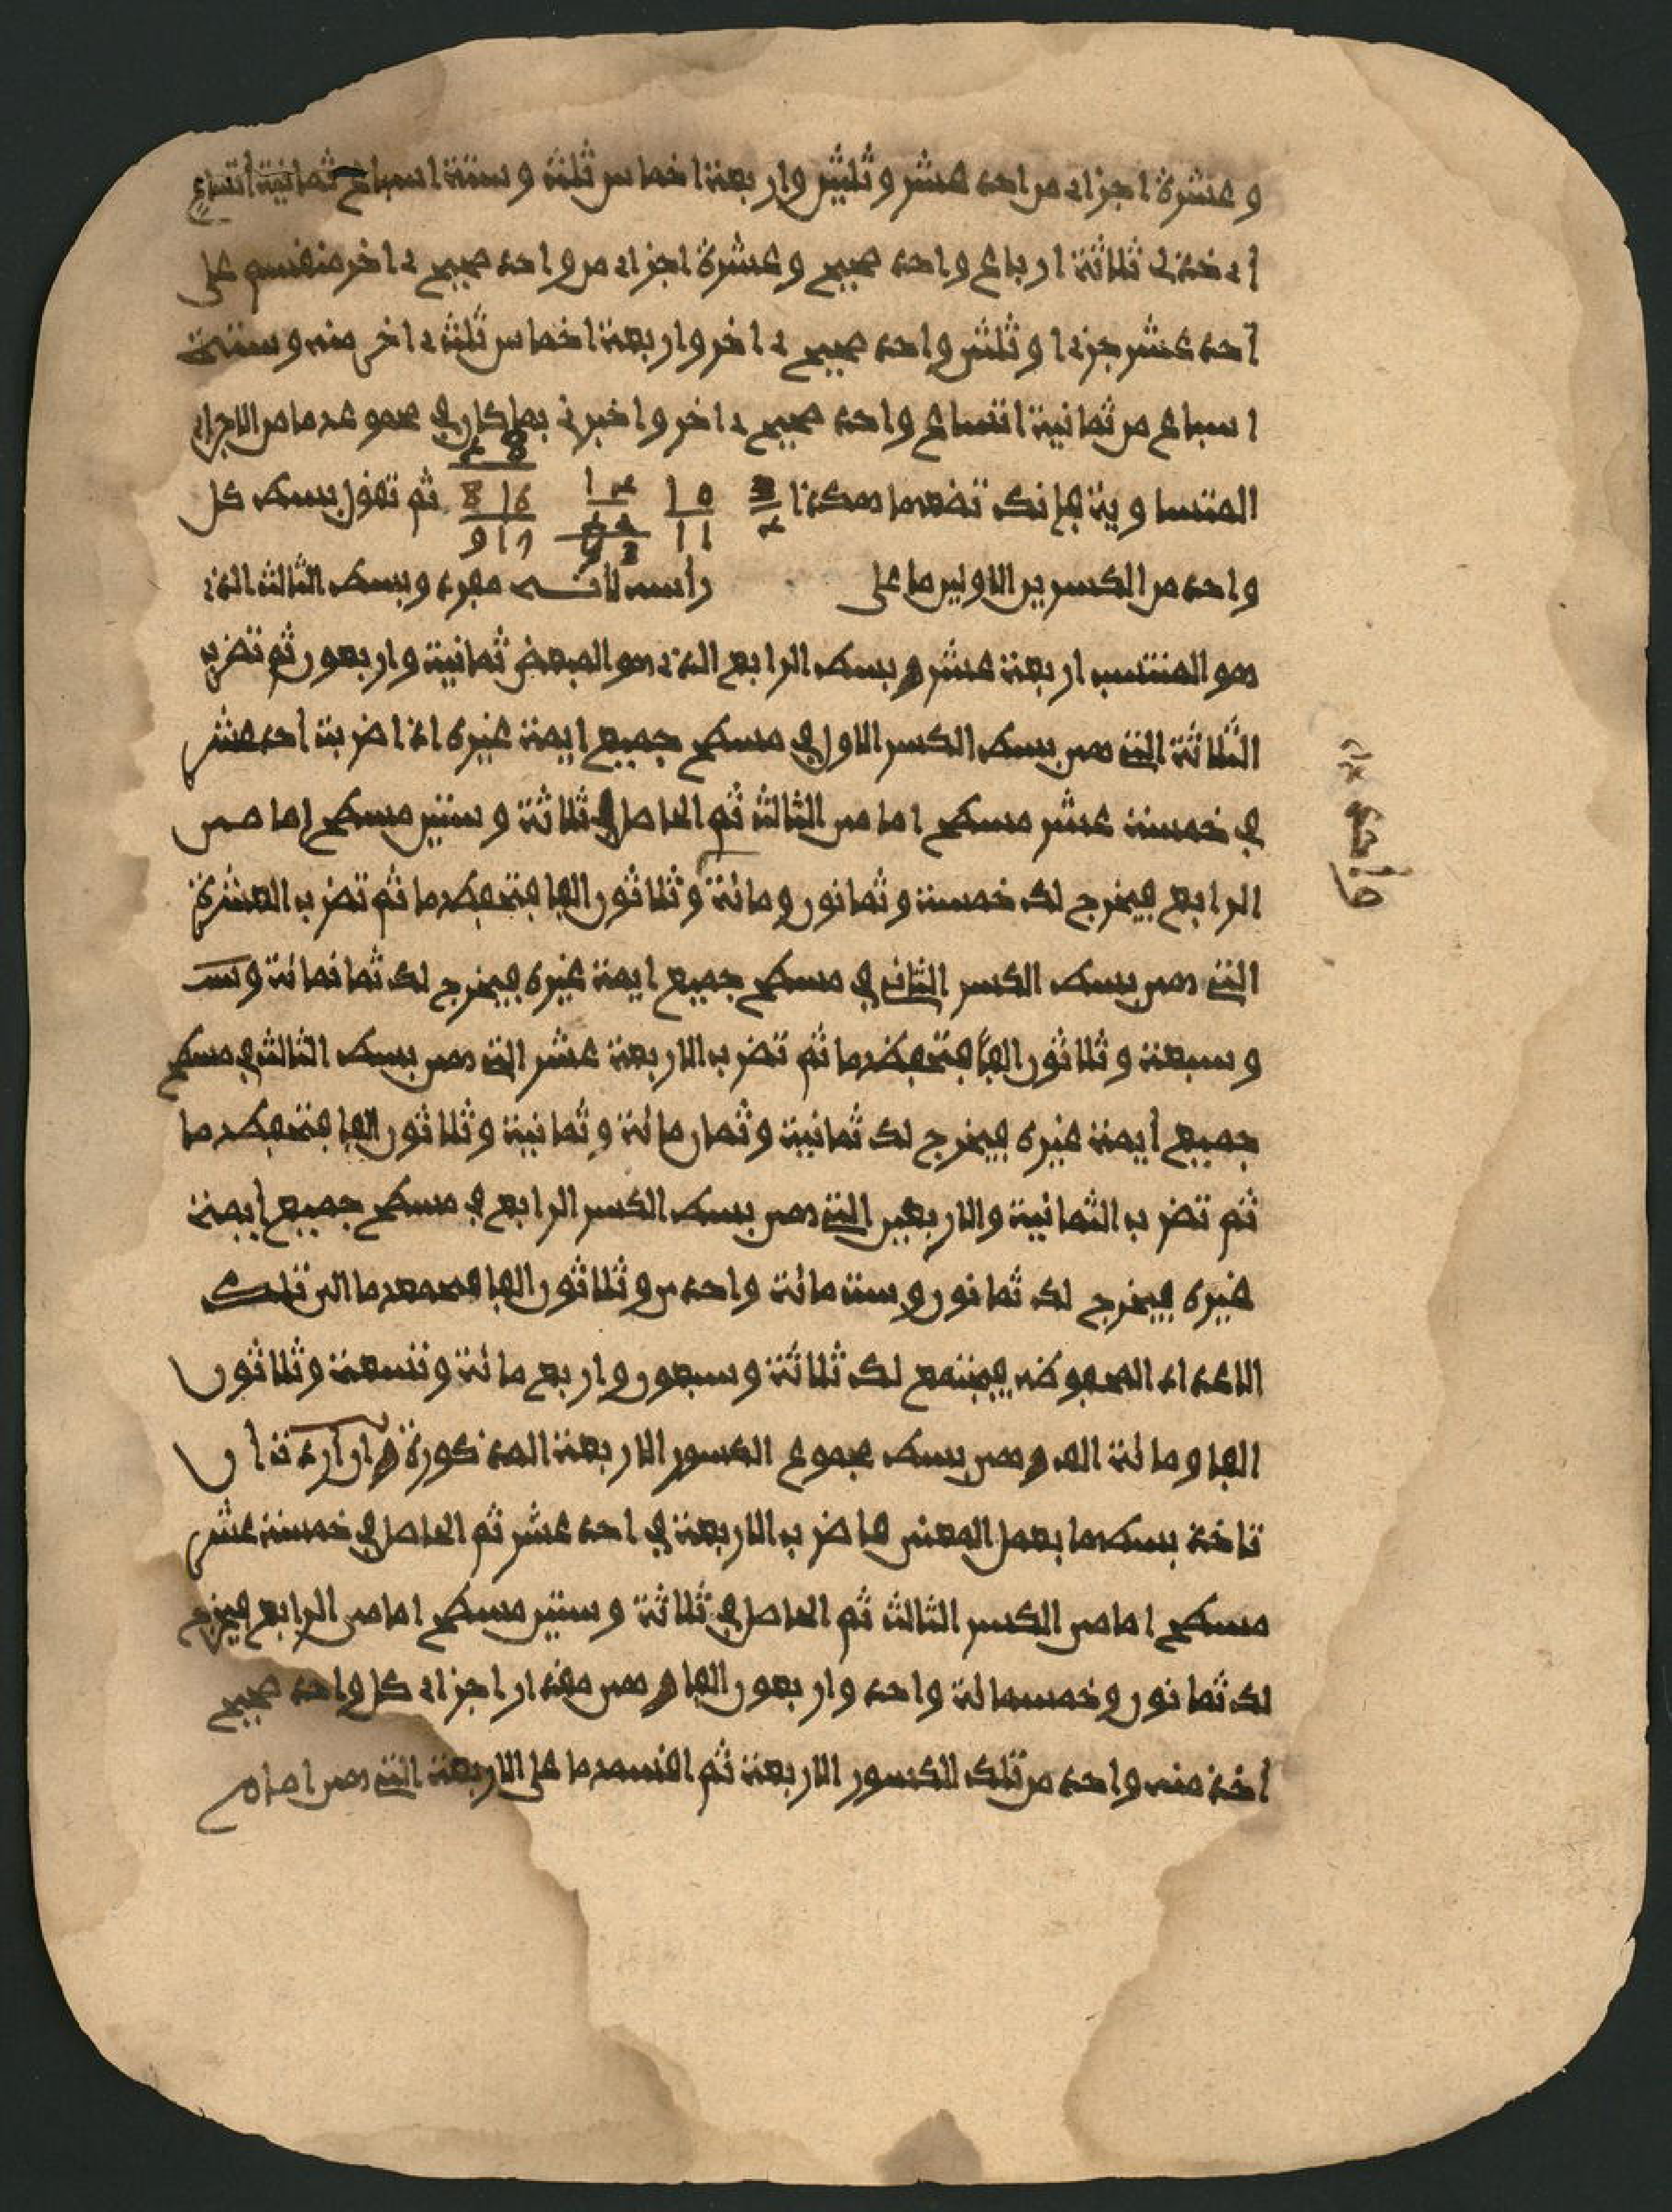 و عشرة اجزاء من احد عشر و ثلثين واربعة اخماس ثلث و ستة اسباع ثمانية أتساع
أي خذ لي ثلاثة ارباع واحد صحيح و عشرة اجزاء من واحد صحيح ءاخر منقسم على
أحد عشر جزءا و ثلثي واحد صحيح ءاخر واربعة اخماس ثلث ءاخر منه و ستة
اسباع من ثمانية اتساع واحد صحيح ءاخر واخبرني بما كان في مجموعها من الاجزاء
المتساوية فإنك تضعها هكذا 3 10 14 48 ثم تقول بسط كل
4 11 816 917
واحد من الكسرين الاولين ما على رأسه لأنه مفرد وبسط الثالث الذي
هو المنتسب اربعة عشر وبسط الرابع الذي هو المبعض ثمانية واربعون ثم تضرب
الثلاثة التي هي بسط الكسر الاول في مسطح جميع ايمة غيره اذا ضربت احد عشر
في خمسة عشر مسطح امامي الثالث ثم الحاصل في ثلاثة و ستين مسطح إمامي
الرابع فيخرج لك خمسة و ثمانون ومائة و ثلاثون الفا فتحفظها ثم تضرب العشرة
التي هي بسط الكسر الثاني في مسطح جميع ايمة غيره فيخرج لك ثمانمائة و
و سبعة و ثلاثون الفا فتحفظها ثم تضرب الاربعة عشر التي هي بسط الثالث في مسطح
جميع أيمة غيره فيخرج لك ثمانية وثمان مائة و ثمانية و ثلاثون الفا فتحفظها
ثم تضرب الثمانية والاربعين التي هي بسط الكسر الرابع في مسطح جميع أيمة
غيره فيخرج لك ثمانون وستمائة واحد و ثلاثون الفا فتجمعها الى تلك
الاعداد المحفوظة فيجتمع لك ثلاثة و سبعون واربع مائة وتسعة و ثلاثون
الفا ومائة الف وهي بسط مجموع الكسور الاربعة المذكورة وإن أردت أن
تاخذ بسطها بعمل المعنى فاضرب الاربعة في احد عشر ثم الحاصل في خمسة عشر
مسطح امامي الكسر الثالث ثم الحاصل في ثلاثة و ستين مسطح امامي الرابع فيخرج
لك ثمانون وخمسمائة واحد واربعون الفا وهي مقدار اجزاء كل واحد صحيح
أخذ منه واحد من تلك الكسور الاربعة ثم اقسمها على الاربعة التي هي امام